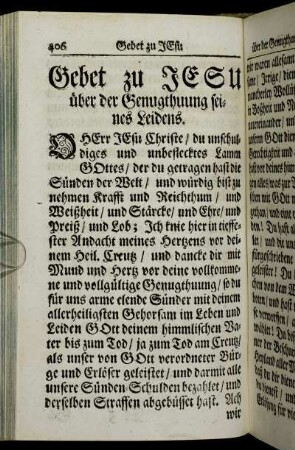 406 Gebet zu JEsu
Gebet zu JESU
über der Genugthuung sei-
nes Leidens.
O HErr JEsu Christe/ du unschul-
diges und unbeflecktes Lamm
GOttes/ der du getragen hast die
Sünden der Welt/ und würdig bist zu
nehmen Krafft und Reichthum/ und
Weißheit/ und Stärcke/ und Ehre/ und
Preiß/ und Lob; Ich knie hier in tieffe-
ster Andacht meines Hertzens vor dei-
nem Heil. Creutz/ und dancke dir mit
Mund und Hertz vor deine vollkomme-
ne und vollgültige Genugthuung/ so du
für uns arme elende Sünder mit deinem
allerheiligsten Gehorsam im Leben und
Leiden GOtt deinem himmlischen Va-
ter bis zum Tod/ ja zum Tod am Creutz/
als unser von GOtt verordneter Bür-
ge und Erlöser geleistet/ und darmit alle
unsere Sünden-Schulden bezahlet/ und
derselben Straffen abgebüsset hast. Ach
wir